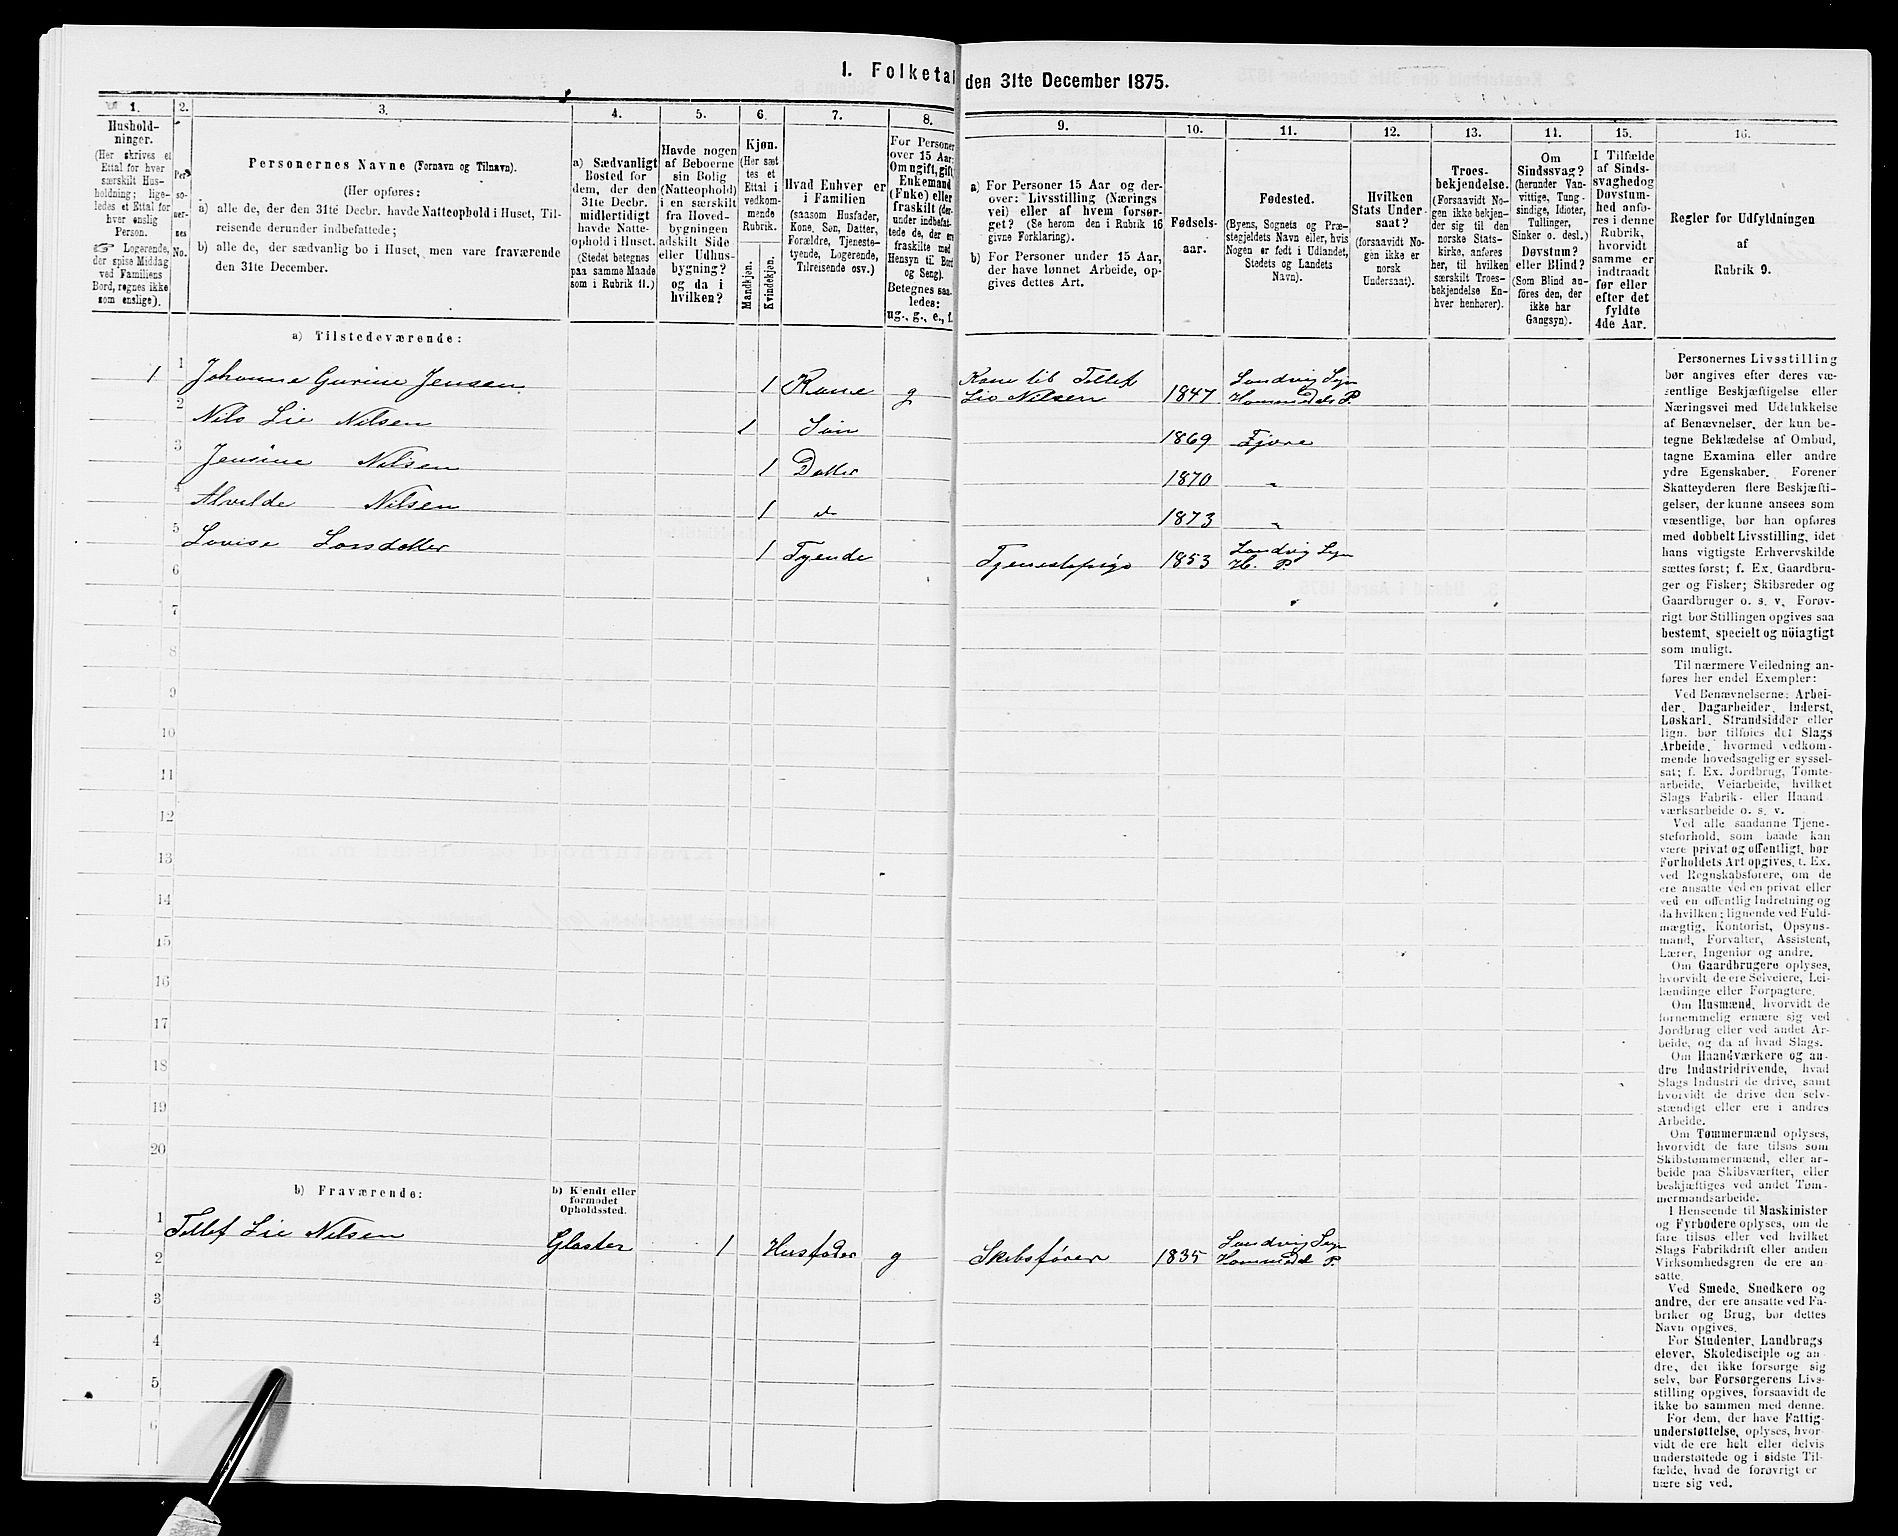 1. Folketal den 31te December 1875.
1.
Hushold-
ninger.
(Her skrives et
Ettal for hver
særskilt Hus-
holdning; lige-
ledes et Ettal for
hver enslig
Person.
☞ Logerende,
der spise Middag
ved Familiens
Bord, regnes ikke
som enslige).
2.
Per-
so-
ner-
nes
No.
3.
Personernes Navne (Fornavn og Tilnavn).
(Her opføres:
a) alle de, der den 31te Decbr. havde Natteophold i Huset, Til-
reisende derunder indbefattede;
b) alle de, der sædvanlig bo i Huset, men vare fraværende
den 31te December.
4.
a) Sædvanligt
Bosted for
dem, der den
31te Decbr.
midlertidigt
havde Natte-
ophold i Huset.
(Stedet betegnes
paa samme Maade
som i Rubrik 11.)
5.
Havde nogen
af Beboerne
sin Bolig
(Natteophold)
i en særskilt
fra Hoved-
bygningen
adskilt Side-
eller Udhus-
bygning?
og da i
hvilken?
6.
Kjøn.
(Her sæt-
tes et
Ettal i
vedkom-
mende
Rubrik.
Mandkjøn.
Kvindekjøn.
7.
Hvad Enhver er
i Familien
(saasom Husfader,
Kone, Søn, Datter,
Forældre, Tjeneste-
tyende, Logerende,
Tilreisende osv.)
8.
For Personer
over 15 Aar:
Om ugift, gift,
Enkemand
(Enke) eller
fraskilt (der-
under indbefat-
tede de, der ere
fraskilte med
Hensyn til Bord
og Seng).
Betegnes saa-
ledes:
ug., g., e., f.
9.
a) For Personer 15 Aar og der-
over: Livsstilling (Nærings-
vei) eller af hvem forsør-
get? (Se herom den i Rubrik 16
givne Forklaring).
b) For Personer under 15 Aar,
der have lønnet Arbeide, op-
gives dettes Art.
10.
Fødsels-
aar.
11.
Fødested.
(Byens, Sognets og Præ-
stegjeldets Navn eller, hvis
Nogen er født i Udlandet,
Stedets og Landets
Navn).
12.
Hvilken
Stats Under-
saat?
(forsaavidt No-
gen ikke er
norsk
Undersaat).
13.
Troes-
bekjendelse.
(Forsaavidt No-
gen ikke bekjen-
der sig til den
norske Stats-
kirke, anføres
her, til hvilken
særskilt Troes-
bekjendelse En-
hver henhører).
14.
Om
Sindssvag?
(herunder Van-
vittige, Tung-
sindige, Idioter,
Tullinger,
Sinker o. desl.)
Døvstum?
eller Blind?
(Som Blind an-
føres den, der
ikke har
Gangsyn).
15.
I Tilfælde
af Sinds-
svaghed og
Døvstum-
hed anfø-
res i denne
Rubrik,
hvorvidt
samme er
indtraadt
før eller
efter det
fyldte
4de Aar.
16.
Regler for Udfyldningen
af
Rubrik 9.
a) Tilstedeværende:
1 1 Johanne Gurine Jensen 1 Kone g Kone til Tellef Lie Nilsen 1847 Landvig Sogn Hommedals P.
2 Nils Lie Nilsen 1 Søn 1869 Fjære
3 Jensine Nilsen 1 Datter 1870 "
4 Alvilde Nilsen 1 d 1873 "
5 Lovise Larsdatter 1 Tyende Tjenestepige 1853 Landvig Sogn H. P.
6
7
8
9
10
11
12
13
14
15
16
17
18
19
20
b) Fraværende:
b) Kjendt eller
formodet
Opholdssted.
1 Tellef Lie Nilsen Glaster 1 Husfader g Skibsfører 1835 Landvig Sogn Hommedal P.
2
3
4
5
6
Personernes Livsstilling
bør angives efter deres væ-
sentlige Beskjæftigelse eller
Næringsvei med Udelukkelse
af Benævnelser, der kun be-
tegne Beklædelse af Ombud,
tagne Examina eller andre
ydre Egenskaber. Forener
Skatteyderen flere Beskjæfti-
gelser, der kunne ansees som
væsentlige, bør han opføres
med dobbelt Livsstilling, idet
hans vigtigste Erhvervskilde
sættes først; f. Ex. Gaardbru-
ger og Fisker; Skibsreder og
Gaardbruger o. s. v. Forøv-
rigt bør Stillingen opgives saa
bestemt, specielt og nöiagtigt
som muligt.
Til nærmere Veiledning an-
føres her endel Exempler:
Ved Benævnelserne: Arbei-
der, Dagarbeider, Inderst,
Løskarl, Strandsidder eller
lign. bør tilføies det Slags
Arbeide, hvormed vedkom-
mende hovedsagelig er syssel-
sat; f. Ex. Jordbrug, Tomte-
arbeide, Veiarbeide, hvilket
Slags Fabrik- eller Haand-
værksarbeide o. s. v.
Ved alle saadanne Tjene-
steforhold, som baade kan
være privat og offentligt, bør
Forholdets Art opgives, t. Ex.
ved Regnskabsførere, om de
ere ansatte ved en privat eller
ved en offentlig Indretning og
da hvilken; lignende ved Fuld-
mægtig, Kontorist, Opsyns-
mand, Forvalter, Assistent,
Lærer, Ingeniør og andre.
Om Gaardbrugere oplyses,
hvorvidt de ere Selveiere, Lei-
lændinge eller Forpagtere.
Om Husmænd, hvorvidt de
fornemmelig ernære sig ved
Jordbrug eller ved andet Ar-
beide, og da af hvad Slags.
Om Haandværkere og an-
dre Industridrivende, hvad
Slags Industri de drive, samt
hvorvidt de drive den selv-
stændigt eller ere i andres
Arbeide.
Om Tømmermænd oplyses,
hvorvidt de fare tilsøs som
Skibstømmermænd, eller ar-
beide paa Skibsværfter, eller
beskjæftiges ved andet Tøm-
mermandsarbeide.
I Henseende til Maskinister
og Fyrbødere oplyses, om de
fare tilsøs eller ved hvilket
Slags Fabrikdrift eller anden
Virksomhedsgren de ere an-
satte.
Ved Smede, Snedkere og
andre, der ere ansatte ved Fa-
briker og Brug, bør dettes
Navn opgives.
For Studenter, Landbrugs-
elever, Skoledisciple og an-
dre, det ikke forsørge sig
selv, bør Forsørgerens Livs-
stilling opgives, forsaavidt de
ikke bo sammen med denne.
For dem, der have Fattig-
understøttelse, oplyses, hvor-
vidt de ere helt eller delvis
understøttede og i sidste Til-
fælde, hvad de forøvrigt er-
nære sig ved.